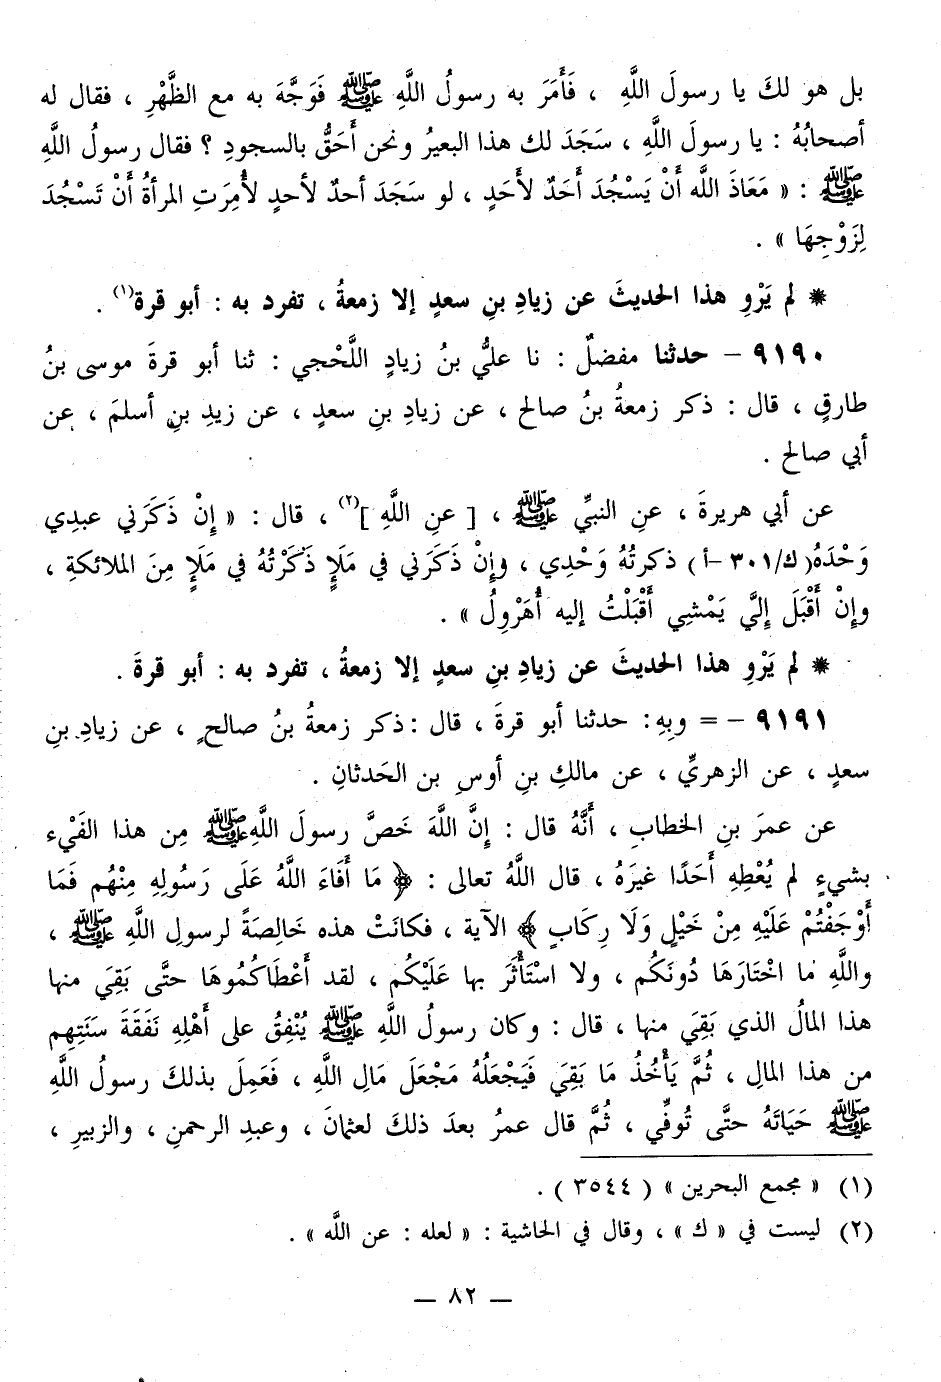 بل هو لكَ يا رسولَ اللَّهِ ، فَأَمَرَ به رسولُ اللَّهِ ﷺ فَوَجَّهَ به مع الظَّهْرِ ، فقال له
أصحابُهُ : يا رسولَ اللَّهِ ، سَجَدَ لك هذا البعيرُ ونحن أَحَقُّ بالسجودِ ؟ فقال رسولُ اللَّهِ
ﷺ : « مَعَاذَ اللَّه أَنْ يَسْجُدَ أَحَدٌ لأَحَدٍ ، لو سَجَدَ أحدٌ لأحدٍ لأُمِرَتِ المرأةُ أَنْ تَسْجُدَ
لِزَوْجِهَا » .
* لم يَرْوِ هذا الحديثَ عن زيادِ بنِ سعدٍ إلا زمعةُ ، تفرد به : أبو قرة(١) .
٩١٩٠ – حدثنا مفضلٌ : نا عليُّ بنُ زيادٍ اللَّحْجي : ثنا أبو قرةَ موسى بنُ
طارقٍ ، قال : ذكر زمعةُ بنُ صالح ، عن زيادِ بنِ سعدٍ ، عن زيدِ بنِ أسلمَ ، عن
أبي صالح .
عن أبي هريرةَ ، عنِ النبيِّ ﷺ ، [ عنِ اللَّهِ ](٢) ، قال : « إِنْ ذَكَرَني عبدِي
وَحْدَهُ(ك/٣٠١-أ) ذكرتُهُ وَحْدِي ، وإِنْ ذَكَرَني في مَلَإٍ ذَكَرْتُهُ في مَلَإٍ مِنَ الملائكةِ ،
وإِنْ أَقْبَلَ إِليَّ يَمْشِي أَقْبَلْتُ إليه أُهَرْوِلُ » .
* لم يَرْوِ هذا الحديثَ عن زيادِ بنِ سعدٍ إلا زمعةُ ، تفرد به : أبو قرةَ .
٩١٩١ – = وبِهِ : حدثنا أبو قرةَ ، قال : ذكر زمعةُ بنُ صالحٍ ، عن زيادِ بنِ
سعدٍ ، عن الزهريِّ ، عن مالكِ بنِ أوسِ بن الحَدثانِ .
عن عمرَ بنِ الخطابِ ، أَنَّهُ قال : إِنَّ اللَّهَ خَصَّ رسولَ اللَّهِ ﷺ مِن هذا الفَيْء
بشيءٍ لم يُعْطِهِ أَحَدًا غيرَهُ ، قال اللَّهُ تعالى : ﴿ مَا أَفَاءَ اللَّهُ عَلَى رَسُولِهِ مِنْهُم فَمَا
أَوْجَفْتُمْ عَلَيْهِ مِنْ خَيْلٍ وَلَا رِكَابٍ ﴾ الآية ، فكانَتْ هذه خَالِصَةً لرسولِ اللَّهِ ﷺ ،
واللَّهِ ما اخْتَارَهَا دُونَكُم ، ولا اسْتَأْثَرَ بها عَلَيْكُم ، لقد أَعْطَاكُمُوهَا حتَّى بَقِيَ منها
هذا المالُ الذي بَقِيَ منها ، قال : وكان رسولُ اللَّهِ ﷺ يُنْفِقُ على أَهْلِهِ نَفَقَةَ سَنَتِهِم
من هذا المالِ ، ثُمَّ يَأْخُذُ مَا بَقِيَ فَيَجْعَلُهُ مَجْعَلَ مَالِ اللَّهِ ، فَعَمِلَ بذلكَ رسولُ اللَّهِ
ﷺ حَيَاتَهُ حتَّى تُوفِّي ، ثُمَّ قال عمرُ بعدَ ذلكَ لعثمانَ ، وعبدِ الرحمنِ ، والزبيرِ ،
(١) « مجمع البحرين » ( ٣٥٤٤ ) .
(٢) ليست في « ك » ، وقال في الحاشية : « لعله : عن اللَّه » .
— ٨٢ —